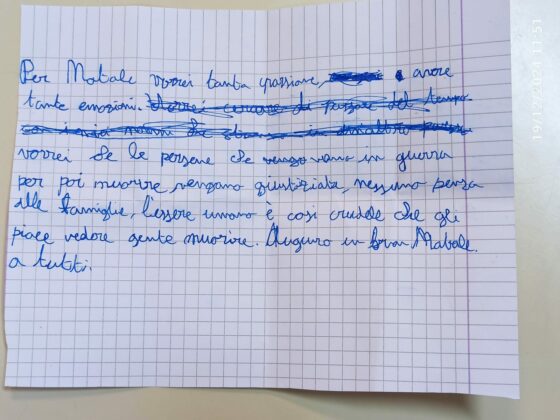 Per Natale vorrei tanta passione, avere
tante emozioni. Vorrei cercare di passare del tempo
vorrei se le persone che vengo vano in guerra
per poi muorire vengano giustiziate, nessuno pensa
alle famiglie, l'essere umano è cosi crudele che gli
piace vedere gente muorire. Auguro un buon Natale.
a tutti.
19/12/2024 11:51